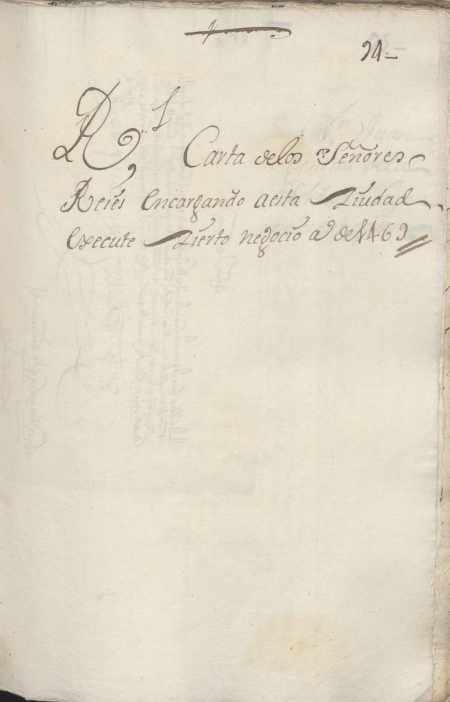 94-
R.l Carta delos Señores
Reies encargando aesta Ziudad
execute Zierto negocio aº de 1469